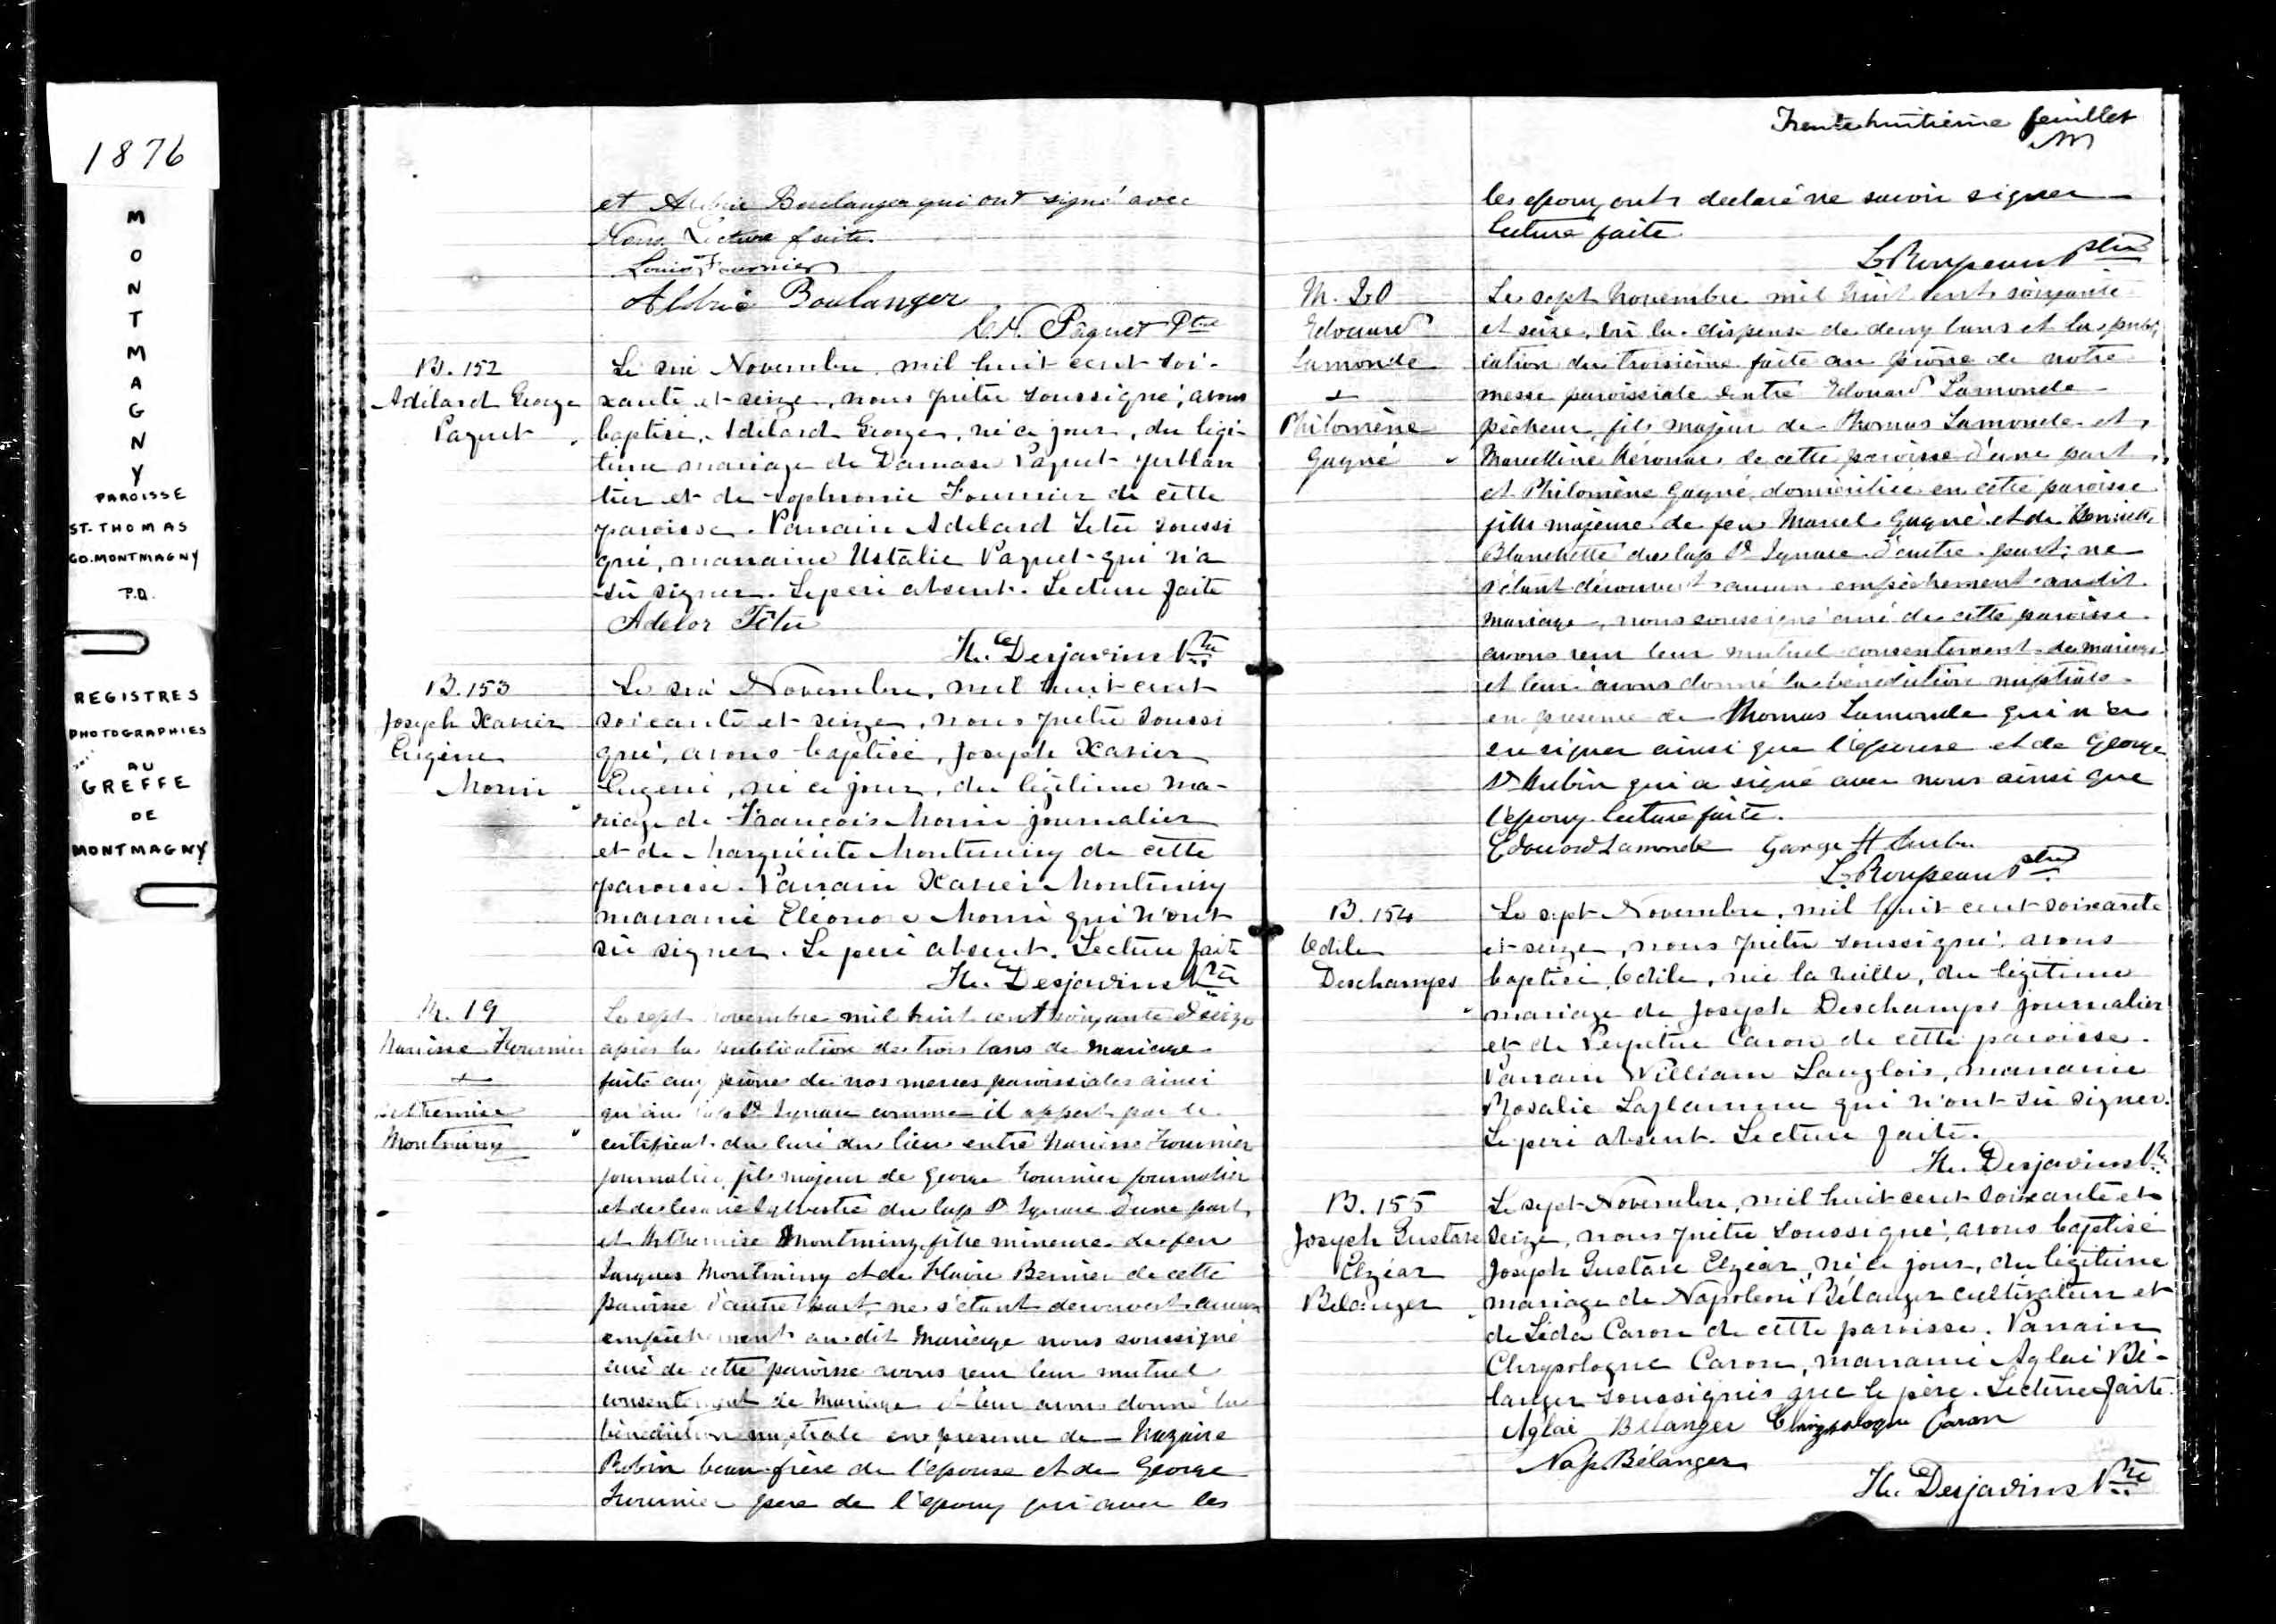 1876
MONTMAGNY
PAROISSE
ST. THOMAS
CO. MONTMAGNY
P.Q.
REGISTRES
PHOTOGRAPHIES
AU
GREFFE
DE
MONTMAGNY
et Boulanger qui ont signé avec
Nous Lecture faite.
Louis Fournier
Aldric Boulanger
Paquet Ptre
B. 152
Adélard George
Paquet
Le six Novembre, mil huit cent soi-
xante et seize, nous prêtre soussigné, avons
baptisé, Adélard George, né ce jour, du légi-
time mariage de Damase Paquet ferblan
tier et de Sophronie Fournier de cette
paroisse. Parrain Adelard Letu soussi
gné, marraine Paquet qui n'a
su signer. Le père absent. Lecture faite
Adélor Têtu
H. Desjardins Ptre
B. 153
Joseph Xavier
Eugène
Morin
Le six Novembre, mil huit cent
soixante et seize, nous prêtre soussi
gné, avons baptisé, Joseph Xavier
Eugène, né ce jour, du légitime ma-
riage de François Morin journalier
et de Marguérite Montminy de cette
paroisse. Parrain Xavier Montminy
marraine Eléonore Morin qui n'ont
su signer. Le père absent. Lecture faite
H. Desjardins Ptre
M. 19
Narcisse Fournier
+
Arthemise
Montminy
Le sept novembre mil huit cent soixante & seize
après la publication des trois bans de mariage
faite aux prônes de nos messes paroissiales ainsi
qu'au Cap St Ignace comme il appert par le
certificat du curé du lieu entre Narcisse Fournier
journalier, fils majeur de George Fournier journalier
et de Sylvestre du Cap St Ignace d'une part,
et Arthemise Montminy fille mineure de feu
Jacques Montminy et de Flavie Bernier de cette
paroisse d'autre part, ne s'étant découvert aucun
empêchement au dit mariage nous soussigné
curé de cette paroisse avons reçu leur mutuel
consentement de mariage et leur avons donné la
bénédiction nuptiale en présence de Nazaire
Robin beau-frère de l'épouse et de George
Fournier père de l'époux qui avec les
Trente huitième feuillet
les époux ont déclaré ne savoir signer
lecture faite
L. Roupeau Ptre
M. 20
Edouard
Lamonde
+
Philomène
Gagné
Le sept Novembre mil huit cent soixante
et seize, vu la dispense de deux bans et la publi
cation du troisième faite au prône de notre
messe paroissiale entre Edouard Lamonde
pêcheur, fils majeur de Thomas Lamonde et
Marcelline Kérouac de cette paroisse d'une part,
et Philomène Gagné domiciliée en cette paroisse
fille majeure de feu Marcel Gagné et de Henriette
Blanchette du Cap St Ignace d'autre part; ne
s'étant découvert aucun empêchement au dit
mariage, nous soussigné curé de cette paroisse
avons reçu leur mutuel consentement de mariage
et leur avons donné la bénédiction nuptiale
en présence de Thomas Lamonde qui n'a
su signer ainsi que l'épouse et de George
St Aubin qui a signé avec nous ainsi que
l'époux lecture faite.
Edouard Lamonde George St Aubin
L. Roupeau Ptre
B. 154
Odile
Deschamps
Le sept Novembre, mil huit cent soixante
et seize, nous prêtre soussigné, avons
baptisé, Odile, née la veille, du légitime
mariage de Joseph Deschamps journalier
et de Perpétue Caron de cette paroisse.
Parrain William Langlois, marraine
Rosalie Laflamme qui n'ont su signer.
Le père absent. Lecture faite.
H. Desjardins Ptre
B. 155
Joseph Gustave
Elzéar
Bélanger
Le sept Novembre, mil huit cent soixante et
seize, nous prêtre soussigné, avons baptisé
Joseph Gustave Elzéar, né ce jour, du légitime
mariage de Napoléon Bélanger cultivateur et
de Léda Caron de cette paroisse. Parrain
Chrysologue Caron, marraine Aglaé Bé-
langer soussignés avec le père. Lecture faite.
Aglaé Bélanger Chrysologue Caron
Nap. Bélanger
H. Desjardins Ptre